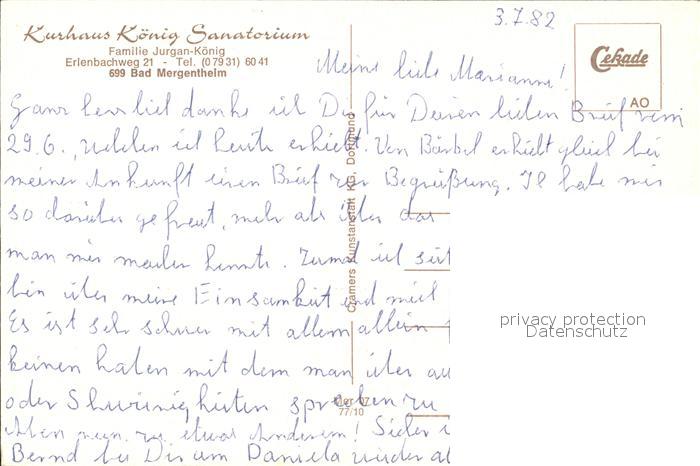 3.7.82
Kurhaus König Sanatorium
Familie Jurgan-König
Erlenbachweg 21 - Tel. (07931) 6041
699 Bad Mergentheim
Cekade
AO
Meine liebe Marianne!
Ganz herzlich danke ich Dir für Deinen lieben Brief vom
29.6., welchen ich heute erhielt. Von Bärbel erhielt gleich bei
meiner Ankunft einen Brief zur Begrüßung. Ich habe mich
so darüber gefreut, mehr als über das
man mir machen konnte. Zumal ich seit
bin über meine Einsamkeit und mich
Es ist sehr schwer mit allem allein
keinen haben mit dem man über
oder Schwierigkeiten sprechen zu
Aber nun zu etwas Anderem! Sicher
Bernd bei Dir um Daniela wieder
Cramers Kunstanstalt KG, Dortmund
77/10
privacy protection
Datenschutz